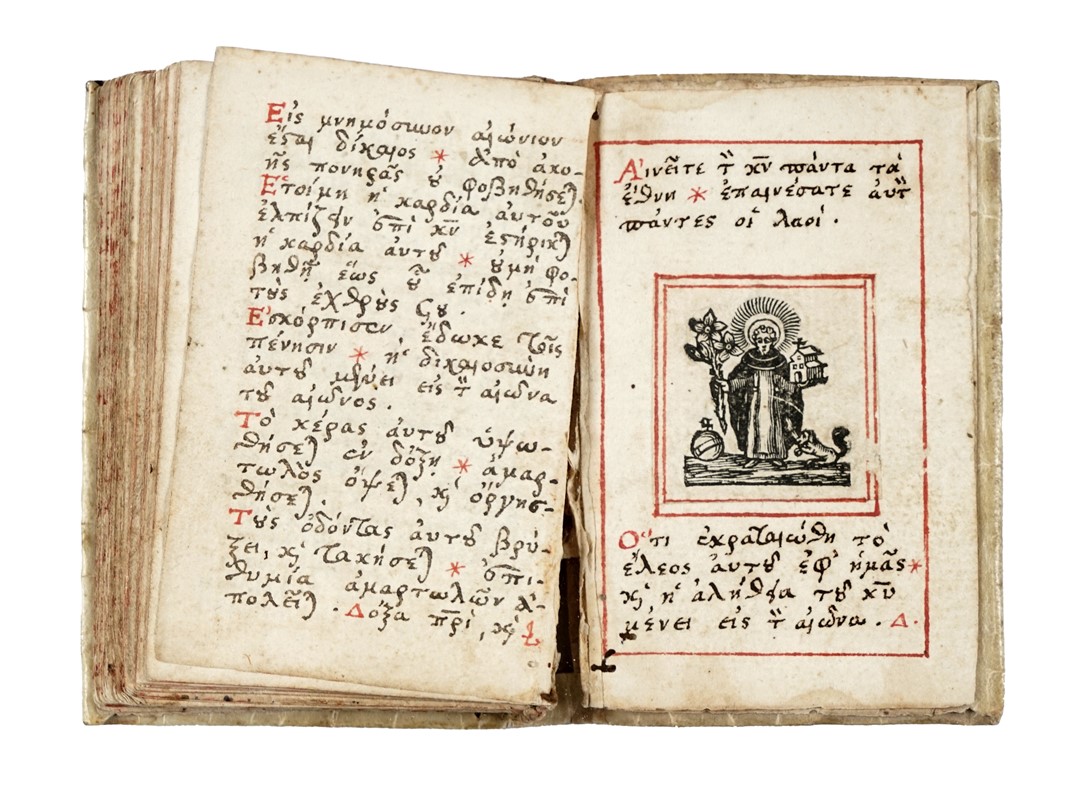 Εἰς μνημόσυνον αἰώνιον
ἔσται δίκαιος * ἀπὸ ἀκο-
ῆς πονηρᾶς οὐ φοβηθήσεται.
Ἑτοίμη ἡ καρδία αὐτοῦ
ἐλπίζειν ἐπὶ κν̄ ἐστήρικται
ἡ καρδία αὐτοῦ * οὐ μὴ φο-
βηθῇ ἕως οὗ ἐπίδῃ ἐπὶ
τοὺς ἐχθροὺς
Ἐσκόρπισεν ἔδωκε τοῖς
πένησιν * ἡ δικαιοσύνη
αὐτοῦ μένει εἰς τὸν αἰῶνα
τοῦ αἰῶνος.
Τὸ κέρας αὐτοῦ ὑψω-
θήσεται ἐν δόξῃ * ἁμαρ-
τωλὸς ὄψεται, καὶ ὀργισ-
θήσεται.
Τοὺς ὀδόντας αὐτοῦ βρύ-
ξει, καὶ τακήσεται * ἐπι-
θυμία ἁμαρτωλῶν ἀ-
πολεῖται. Δόξα πρ̄ι, καὶ
Αἰνεῖτε τὸν κν̄ πάντα τὰ
ἔθνη * ἐπαινέσατε αὐτὸν
πάντες οἱ λαοί.
Ὅτι ἐκραταιώθη τὸ
ἔλεος αὐτοῦ ἐφ' ἡμᾶς *
καὶ ἡ ἀλήθεια τοῦ κῡ
μένει εἰς τὸν αἰῶνα. Δ.